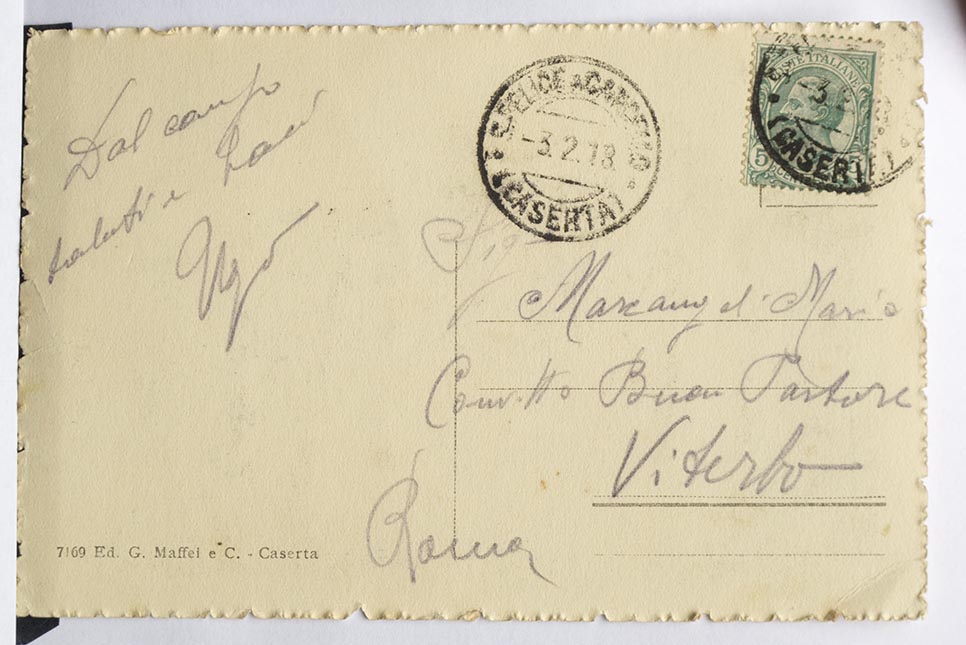 Dal campo
saluti e baci
Ugo
S. FELICE A CANCELLO
-3.2.18
(CASERTA)
POSTE ITALIANE
-3.2
5
(CASERTA)
Sig.
Marcangeli Mario
Conv.tto Buon Pastore
Viterbo
Roma
7169 Ed. G. Maffei e C. - Caserta